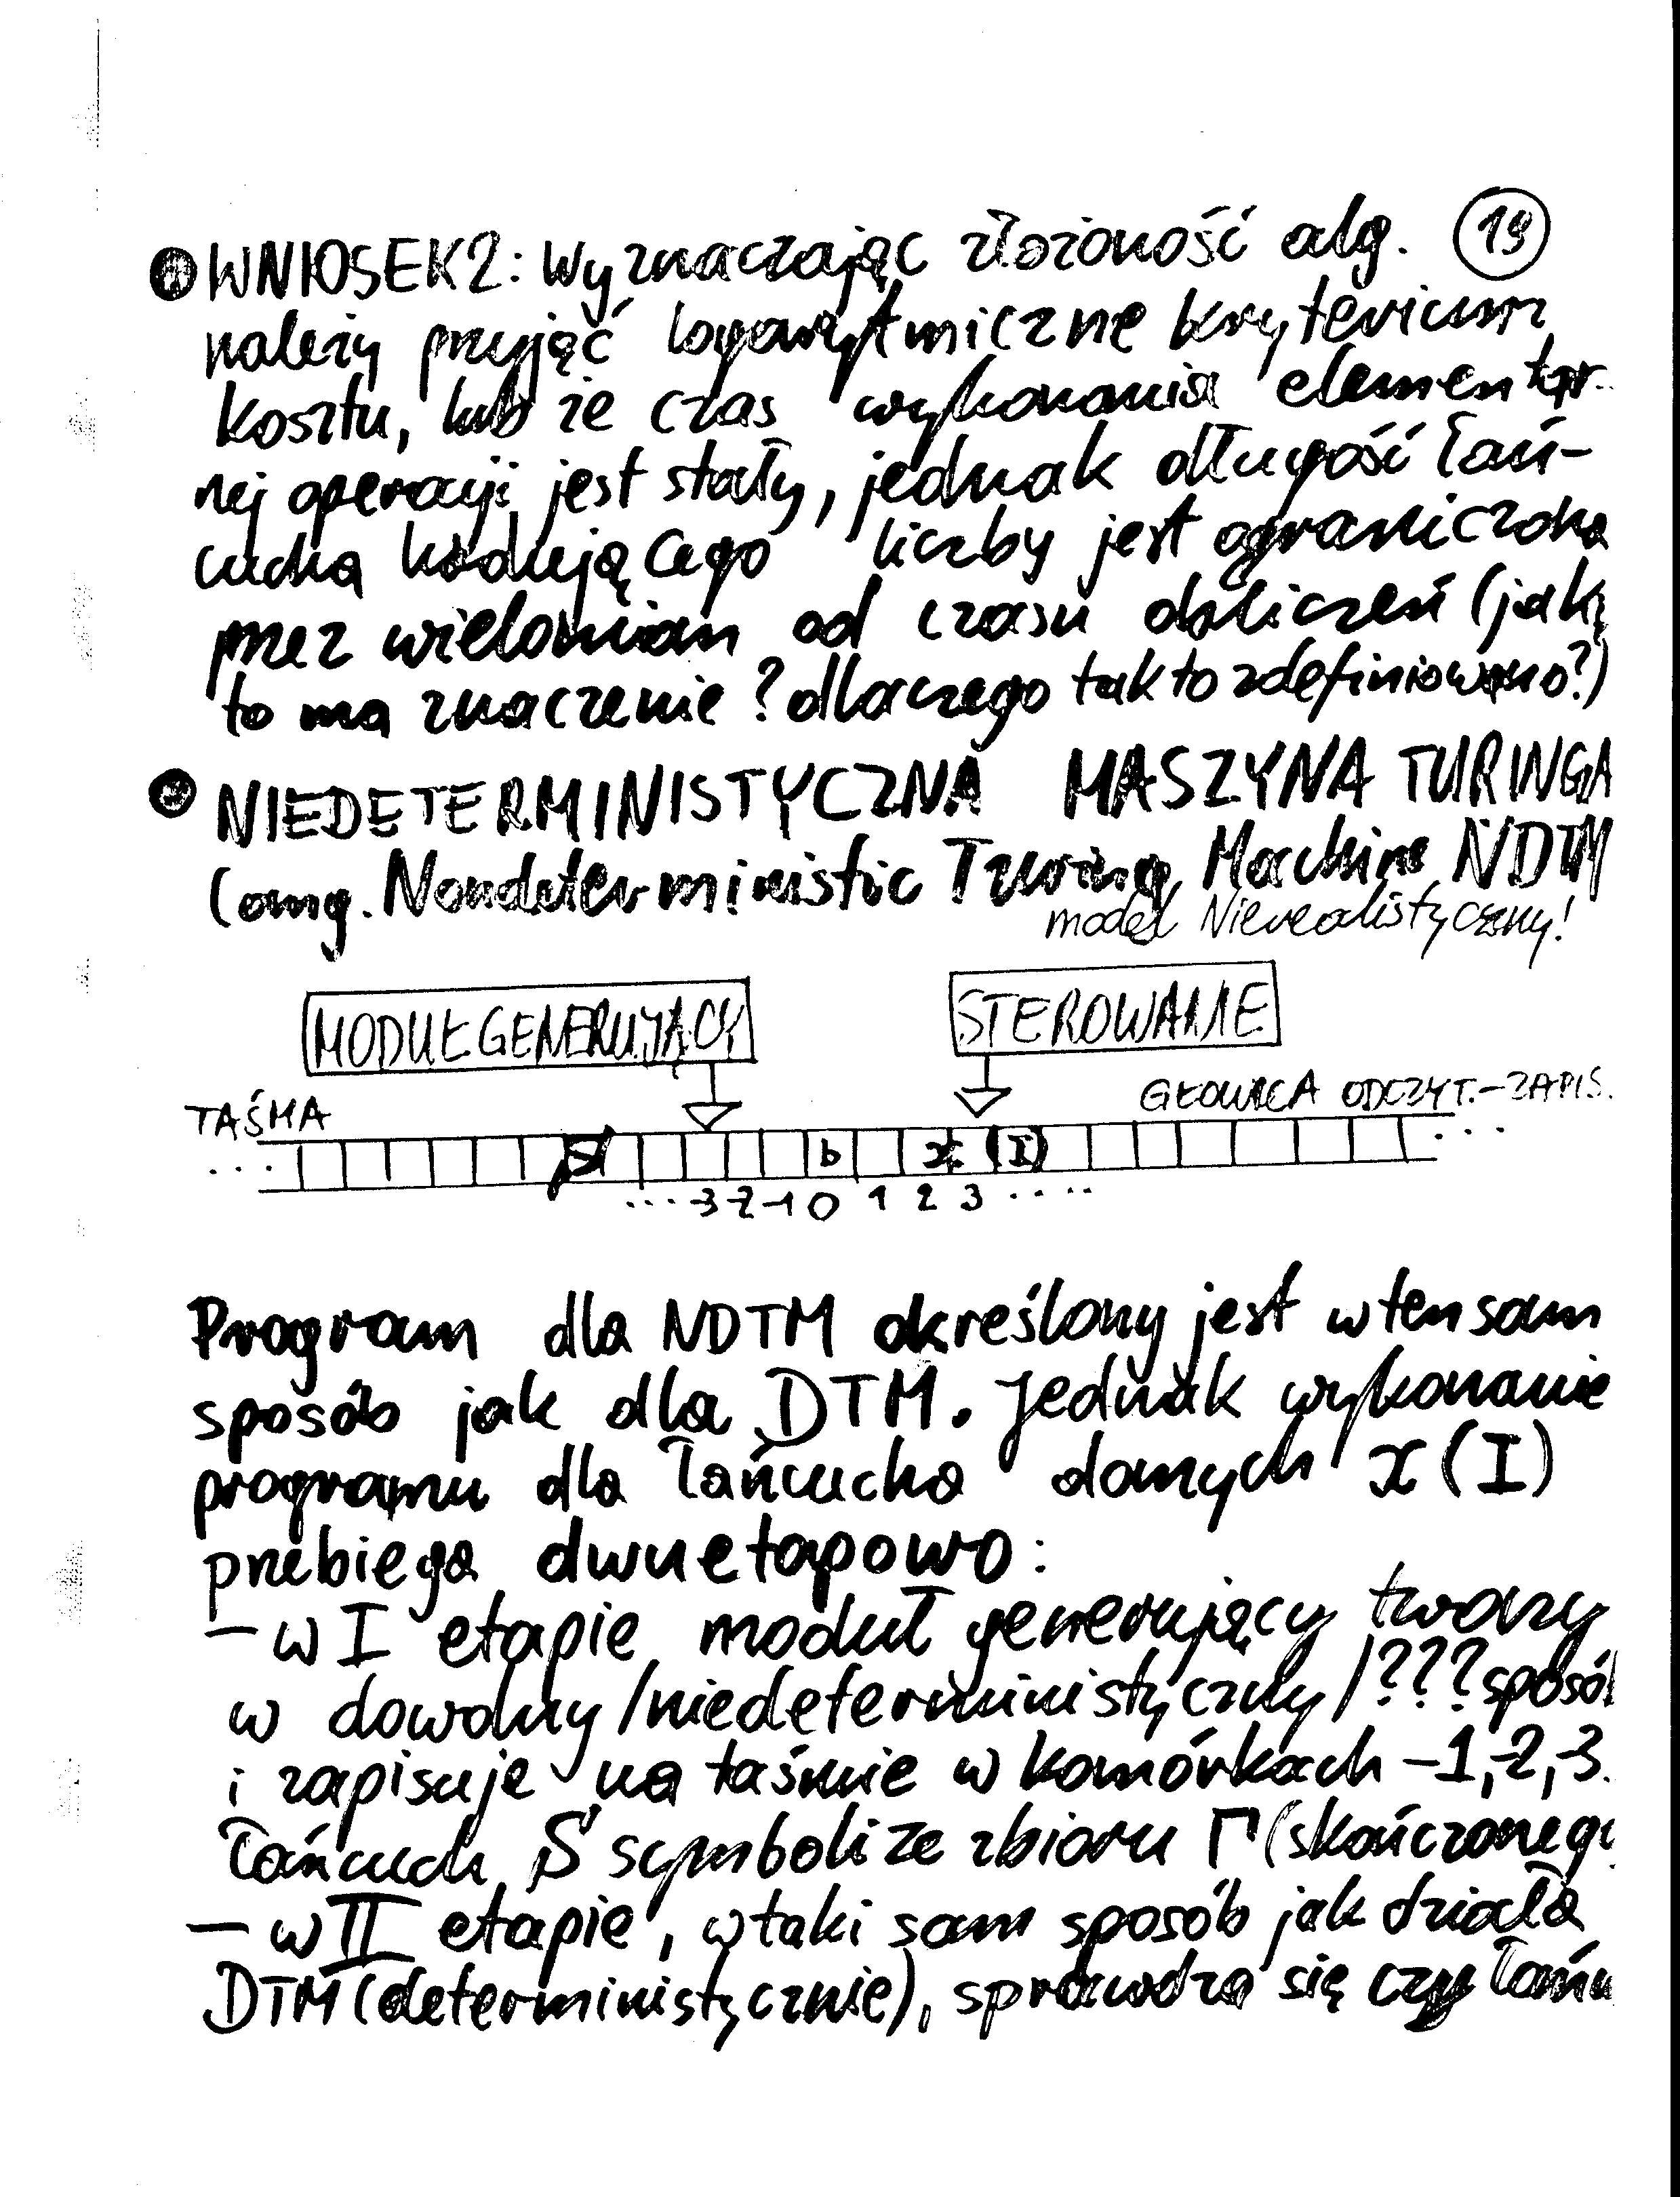 WNIOSEK 2: Wyznaczając złożoność alg. 19
należy przyjąć logarytmiczne kryterium
kosztu, lub że czas wykonania elementar-
nej operacji jest stały, jednak długość łań-
cucha kodującego liczby jest ograniczona
przez wielomian od czasu obliczeń (jakie
to ma znaczenie? dlaczego tak to zdefiniowano?)
NIEDETERMINISTYCZNA MASZYNA TURINGA
(ang. Nondeterministic Turing Machine NDTM
model Nierealistyczny!
MODUŁ GENERUJĄCY STEROWANIE
TAŚMA GŁOWICA ODCZYT.-ZAPIS.
... b x (I) ...
... -3 -2 -1 0 1 2 3 ....
Program dla NDTM określony jest w ten sam
sposób jak dla DTM. Jednak wykonanie
programu dla łańcucha danych x(I)
przebiega dwuetapowo:
- w I etapie moduł generujący tworzy
w dowolny/niedeterministyczny/??? sposób
i zapisuje na taśmie w komórkach -1,-2,-3.
łańcuch S symboli ze zbioru Γ (skończonego
- w II etapie, w taki sam sposób jak działa
DTM (deterministycznie), sprawdza się czy łańcu